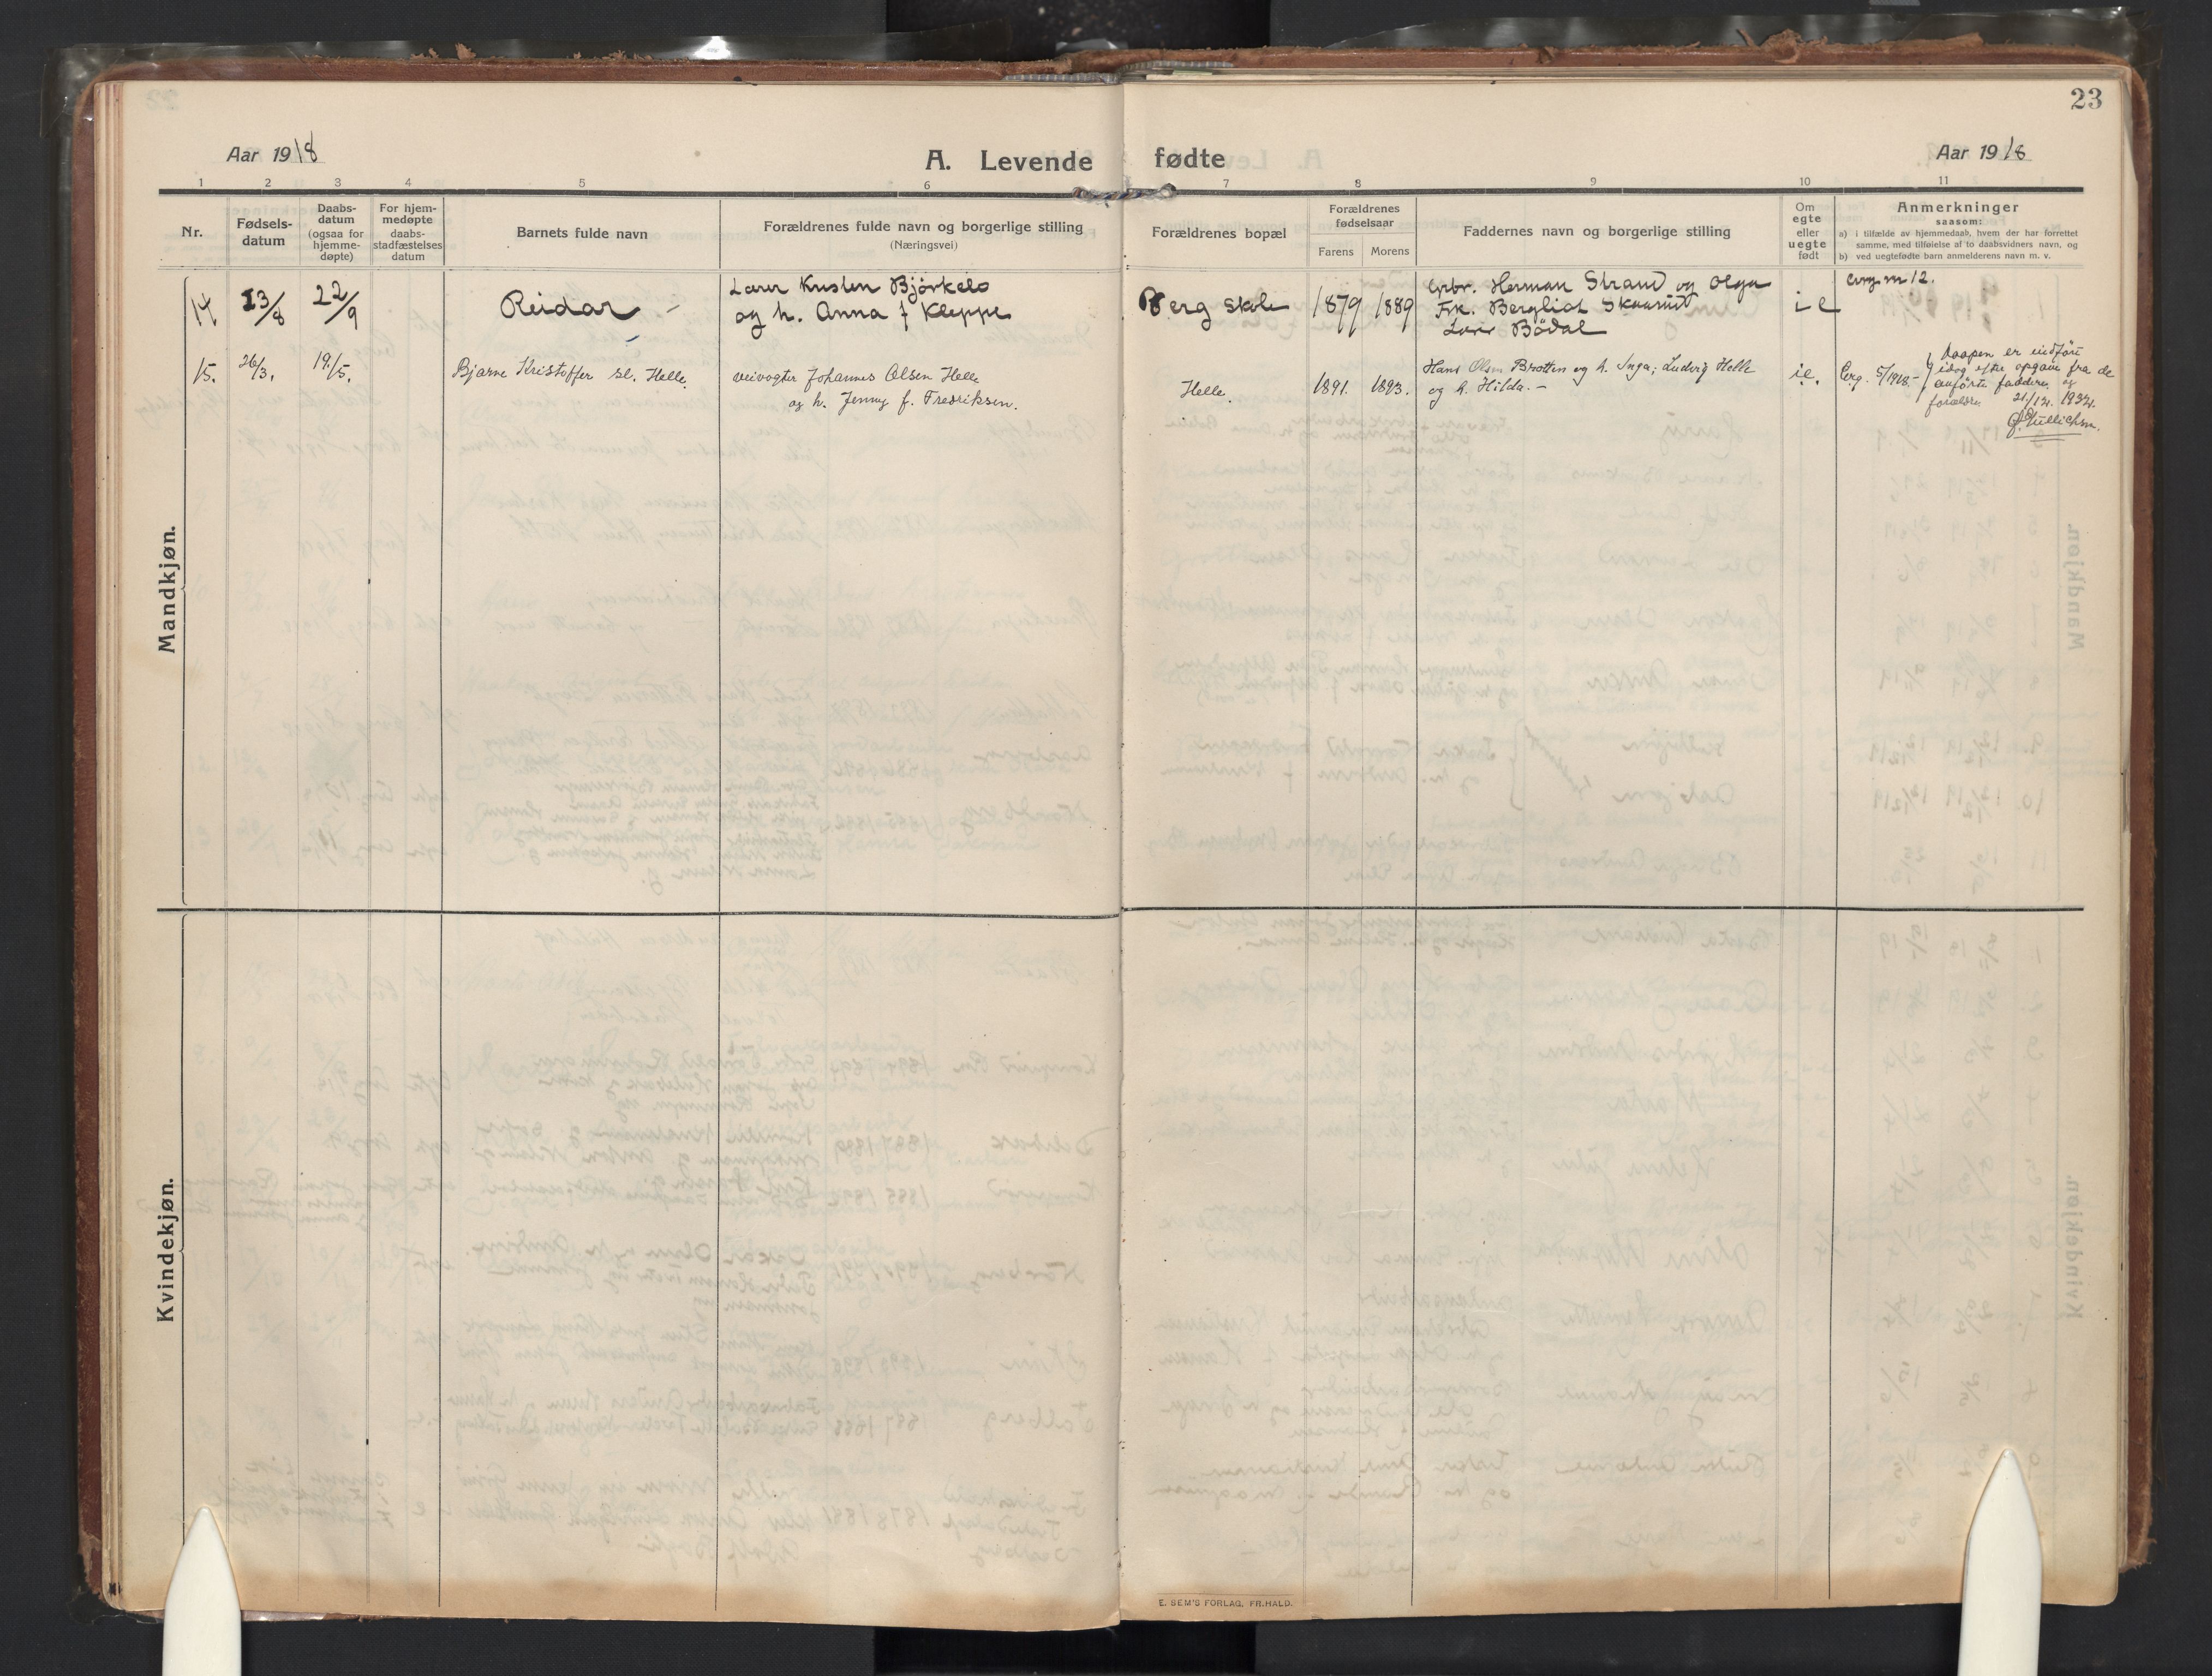 23
Aar 1918
A. Levende fødte
Aar 1918
1 2 3 4 5 6 7 8 9 10 11
Nr.
Fødsels-
datum
Daabs-
datum
(ogsaa for
hjemme-
døpte)
For hjem-
medøpte
daabs-
stadfæstelses
datum
Barnets fulde navn
Forældrenes fulde navn og borgerlige stilling
(Næringsvei)
Forældrenes bopæl
Forældrenes
fødselsaar
Farens Morens
Faddernes navn og borgerlige stilling
Om
egte
eller
uegte
født
Anmerkninger
saasom:
a) i tilfælde av hjemmedaab, hvem der har forrettet
samme, med tilføielse af to daabsvidners navn, og
b) ved uegtefødte barn anmelderens navn m. v.
Mandkjøn.
14 23/8 22/9
Reidar -
Lærer Kristen Bjørkelo
og h. Anna f Kleppe
Berg skole
1879 1889
Grbr. Herman Strand og Olga
Frk. Bergliot Skaarud
Bødal
i e
m 12.
15. 26/3. 19/5.
Bjarne Kristoffer sl. Helle.
veivogter Johannes Olsen Helle
og h. Jenny f. Fredriksen.
Helle.
1891. 1893.
Hans Olsen Bråtten og h. Inga; Ludvig Helle
og h. Hilda. -
i.e.
5/1918.-
Daapen er indført
idag efter opgave fra de
anførte faddere og
forældre. 21/12. 1932.
Kvindekjøn.
E. SEM'S FORLAG, FR.HALD.